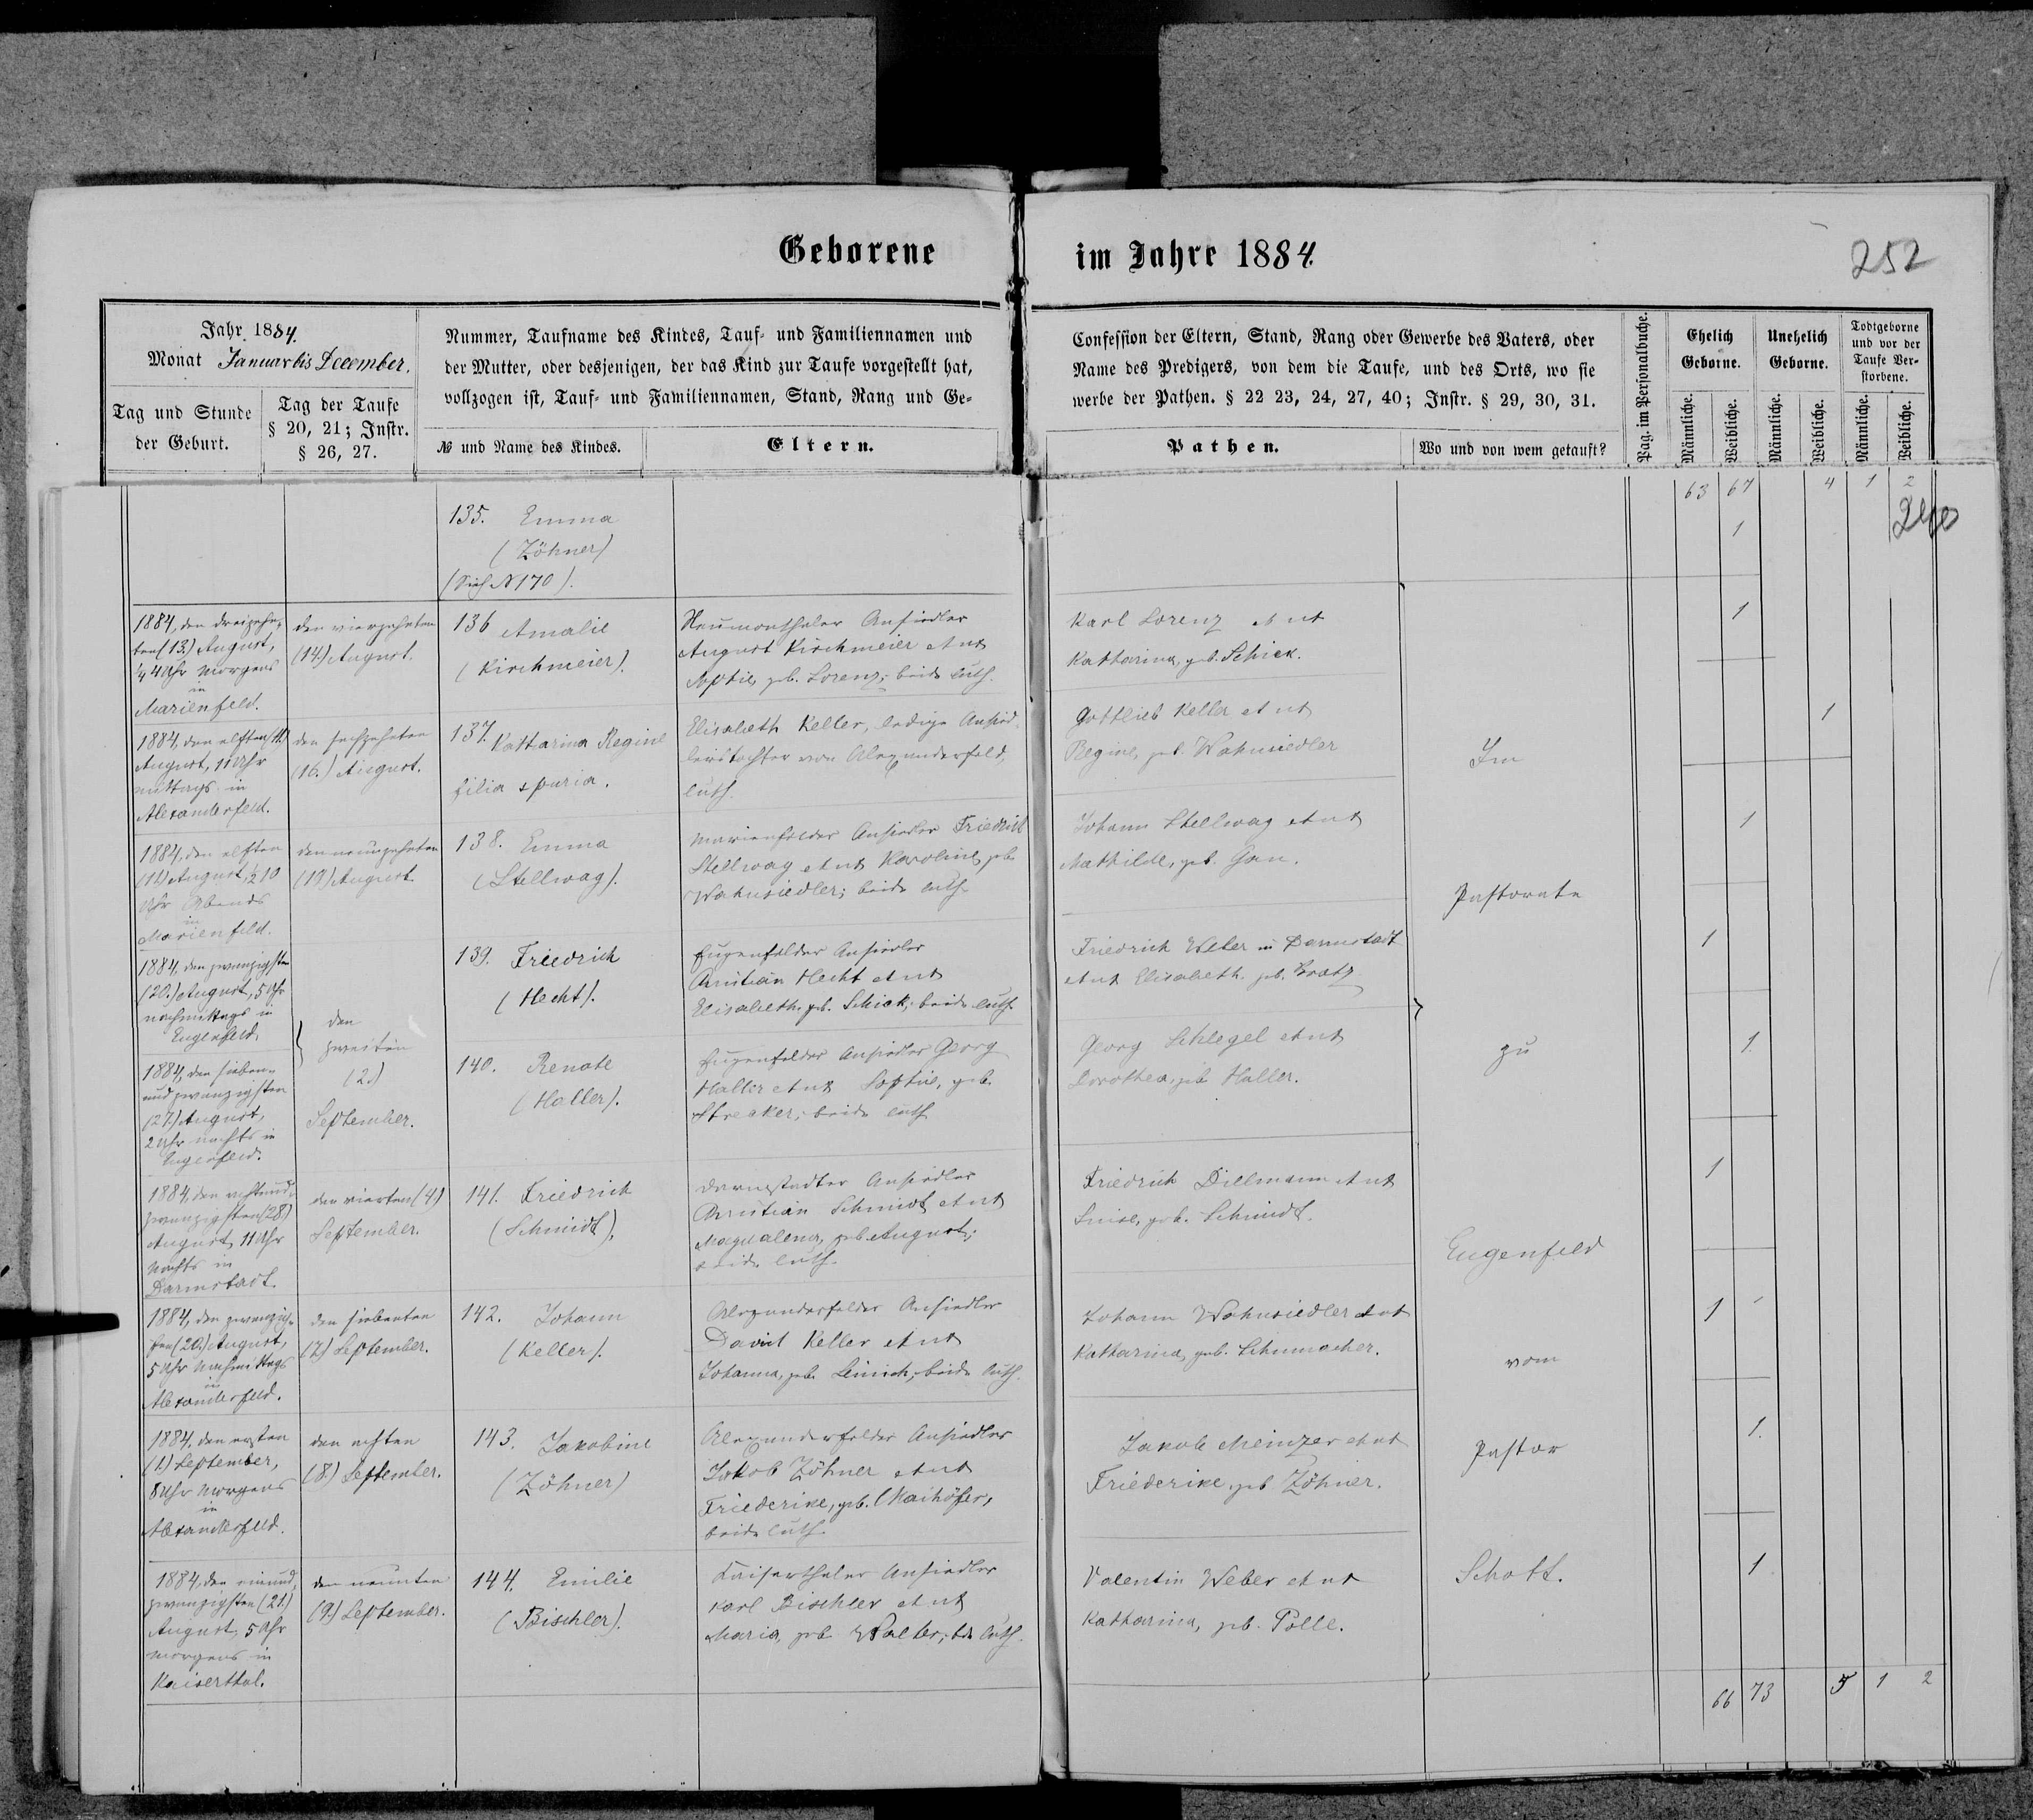 Geborene im Jahre 1884.
252
Jahr 1884.
Monat Januar bis December.
Tag und Stunde
der Geburt.
Tag der Taufe
§ 20, 21; Instr.
§ 26, 27.
Nummer, Taufname des Kindes, Tauf- und Familiennamen und
der Mutter, oder desjenigen, der das Kind zur Taufe vorgestellt hat,
vollzogen ist, Tauf- und Familiennamen, Stand, Rang und Ge-
№ und Name des Kindes.
Eltern.
Confession der Eltern, Stand, Rang oder Gewerbe des Vaters, oder
Name des Predigers, von dem die Taufe, und des Orts, wo sie
werbe der Pathen. § 22 23, 24, 27, 40; Instr. § 29, 30, 31.
Pathen.
Wo und von wem getauft?
Pag. im Personalbuche.
Ehelich
Geborne.
Unehelich
Geborne.
Todtgeborne
und vor der
Taufe Ver-
storbene.
Männliche.
Weibliche.
Männliche.
Weibliche.
Männliche.
Weibliche.
63 67 4 1 2
240
135. Emma
(Zöhner)
(Sieh N 170).
1
1884, den dreizehn-
ten (13.) August,
1/4 4 Uhr Morgens
in
Marienfeld.
den vierzehnten
(14.) August.
136 Amalie
(Kirchmeier).
Neumonthaler Ansiedler
August Kirchmeier et ux
Sophie, geb. Lorenz; beide luth.
Karl Lorenz et ux
Katharina, geb. Schick.
1
1884, den elften (11.)
August, 11 Uhr
mittags in
Alexanderfeld.
den sechzehnten
(16.) August.
137. Katharina Regine
filia spuria.
Elisabeth Keller, ledige Ansied-
lerstochter von Alexanderfeld,
luth.
Gottlieb Keller et ux
Regine, geb. Wahnsiedler
1
1884, den elften
(11.) August, 1/2 10
Uhr Abends
in
Marienfeld.
den neunzehnten
(19.) August.
138. Emma
(Stellwag).
Marienfelder Ansiedler Friedrich
Stellwag et ux Karoline, geb.
Wahnsiedler; beide luth.
Johann Stellwag et ux
Mathilde, geb. Gan.
1
1884, den zwanzigsten
(20.) August, 5 Uhr
nachmittags in
Eugenfeld.
139. Friedrich
(Hecht).
Eugenfelder Ansiedler
Christian Hecht et ux
Elisabeth, geb. Schick; beide luth.
Friedrich Weber in Darmstadt
et ux Elisabeth, geb. Bratz
1
den
zweiten
(2.)
September.
1884, den sieben-
und zwanzigsten
(27.) August,
2 Uhr nachts in
Eugenfeld.
140. Renate
(Haller).
Eugenfelder Ansiedler Georg
Haller et ux Sophie, geb.
Strecker; beide luth
Georg Schlegel et ux
Dorothea, geb. Haller.
1
1884, den achtund-
zwanzigsten (28.)
August, 11 Uhr
Nachts in
Darmstadt.
den vierten (4.)
September.
141. Friedrich
(Schmidt).
Darmstadter Ansiedler
Christian Schmidt et ux
Magdalena, geb. August;
beide luth.
Friedrich Dillmann et ux
Luise, geb. Schmidt.
1
1884, den zwanzig-
sten (20.) August,
5 Uhr Nachmittags
in
Alexanderfeld.
den siebenten
(7.) September.
142. Johann
(Keller).
Alexanderfelder Ansiedler
David Keller et ux
Johanna, geb. Leinich; beide luth.
Johann Wahnsiedler et ux
Katharina, geb. Schumacher.
1
1884, den ersten
(1.) September,
8 Uhr Morgens
in
Alexanderfeld.
den achten
(8.) September.
143. Jakobine
(Zöhner)
Alexanderfelder Ansiedler
Jakob Zöhner et ux
Friederike, geb. Maihöfer,
beide luth.
Jakob Meinzer et ux
Friederike, geb. Zöhner.
1.
1884, den einund-
zwanzigsten (21.)
August, 5 Uhr
morgens in
Kaiserthal.
den neunten
(9.) September.
144. Emilie
(Bischler).
Kaiserthaler Ansiedler
Karl Bischler et ux
Maria, geb. Walter; bde luth.
Valentin Weber et ux
Katharina, geb. Polle.
1
Im
Pastorate
zu
Eugenfeld
vom
Pastor
Schott.
66 73 5 1 2